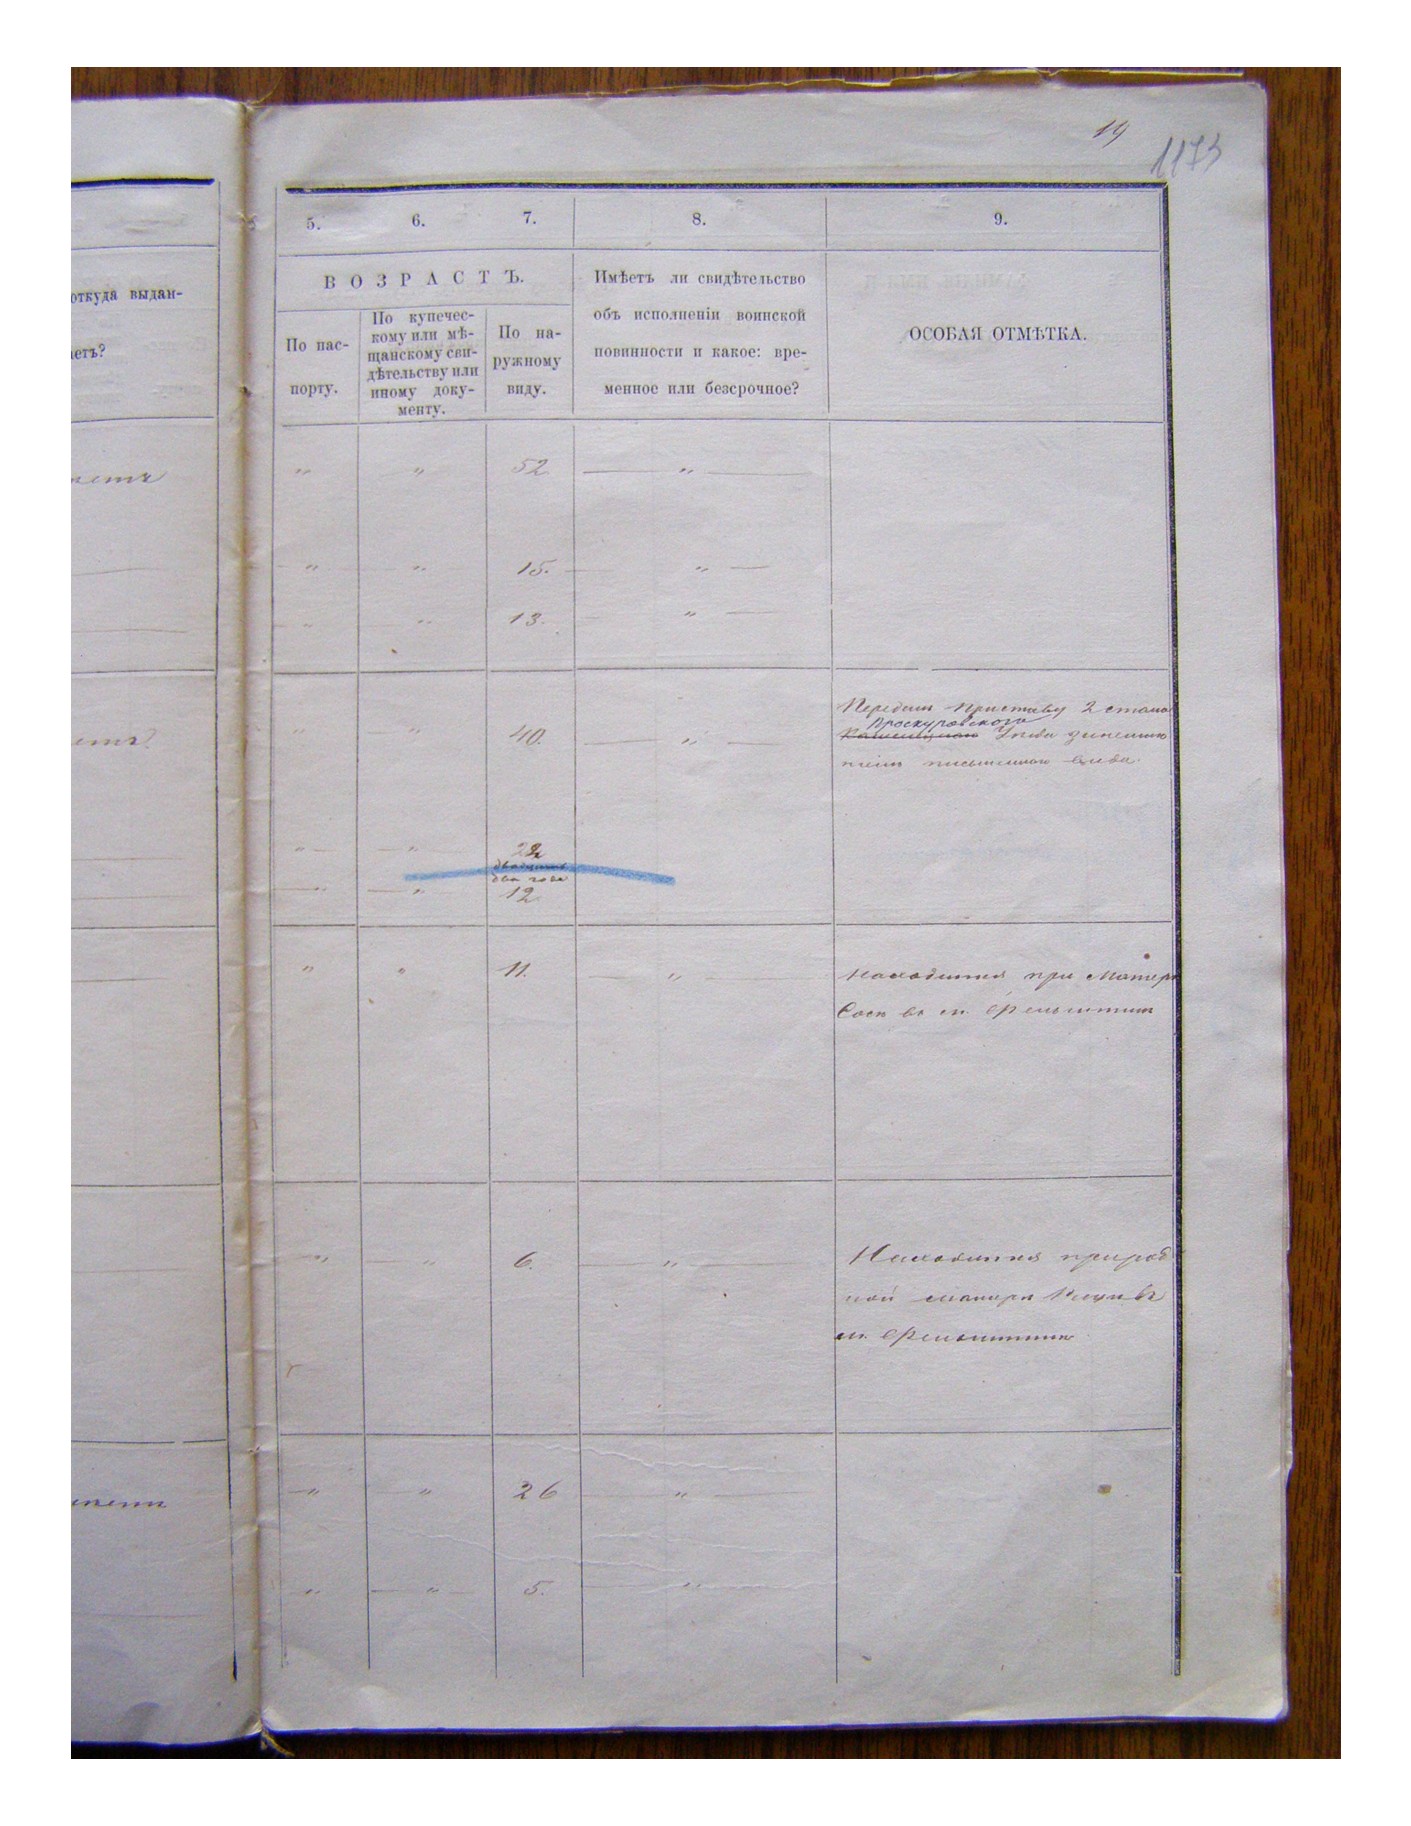 19
1173
5. 6. 7. 8. 9.
откуда выдан-
ВОЗРАСТЪ.
Имѣетъ ли свидѣтельство
объ исполненіи воинской
повинности и какое: вре-
менное или безсрочное?
ОСОБАЯ ОТМѢТКА.
По пас-
порту.
По купечес-
кому или мѣ-
щанскому сви-
дѣтельству или
иному доку-
менту.
По на-
ружному
виду.
" " 52 "
" " 15. "
" " 13. "
Передан Приставу 2 стана
Проскуровскаго
" " 40. " Уезда
письменнаго вида.
" " 22
двадцать
два года
" " 12
" " 11. " Находится при Матери
в м. Фельштин
" " 6. " Находится при род
ной матери
м. Фельштин
" " 26 "
" " 5. "